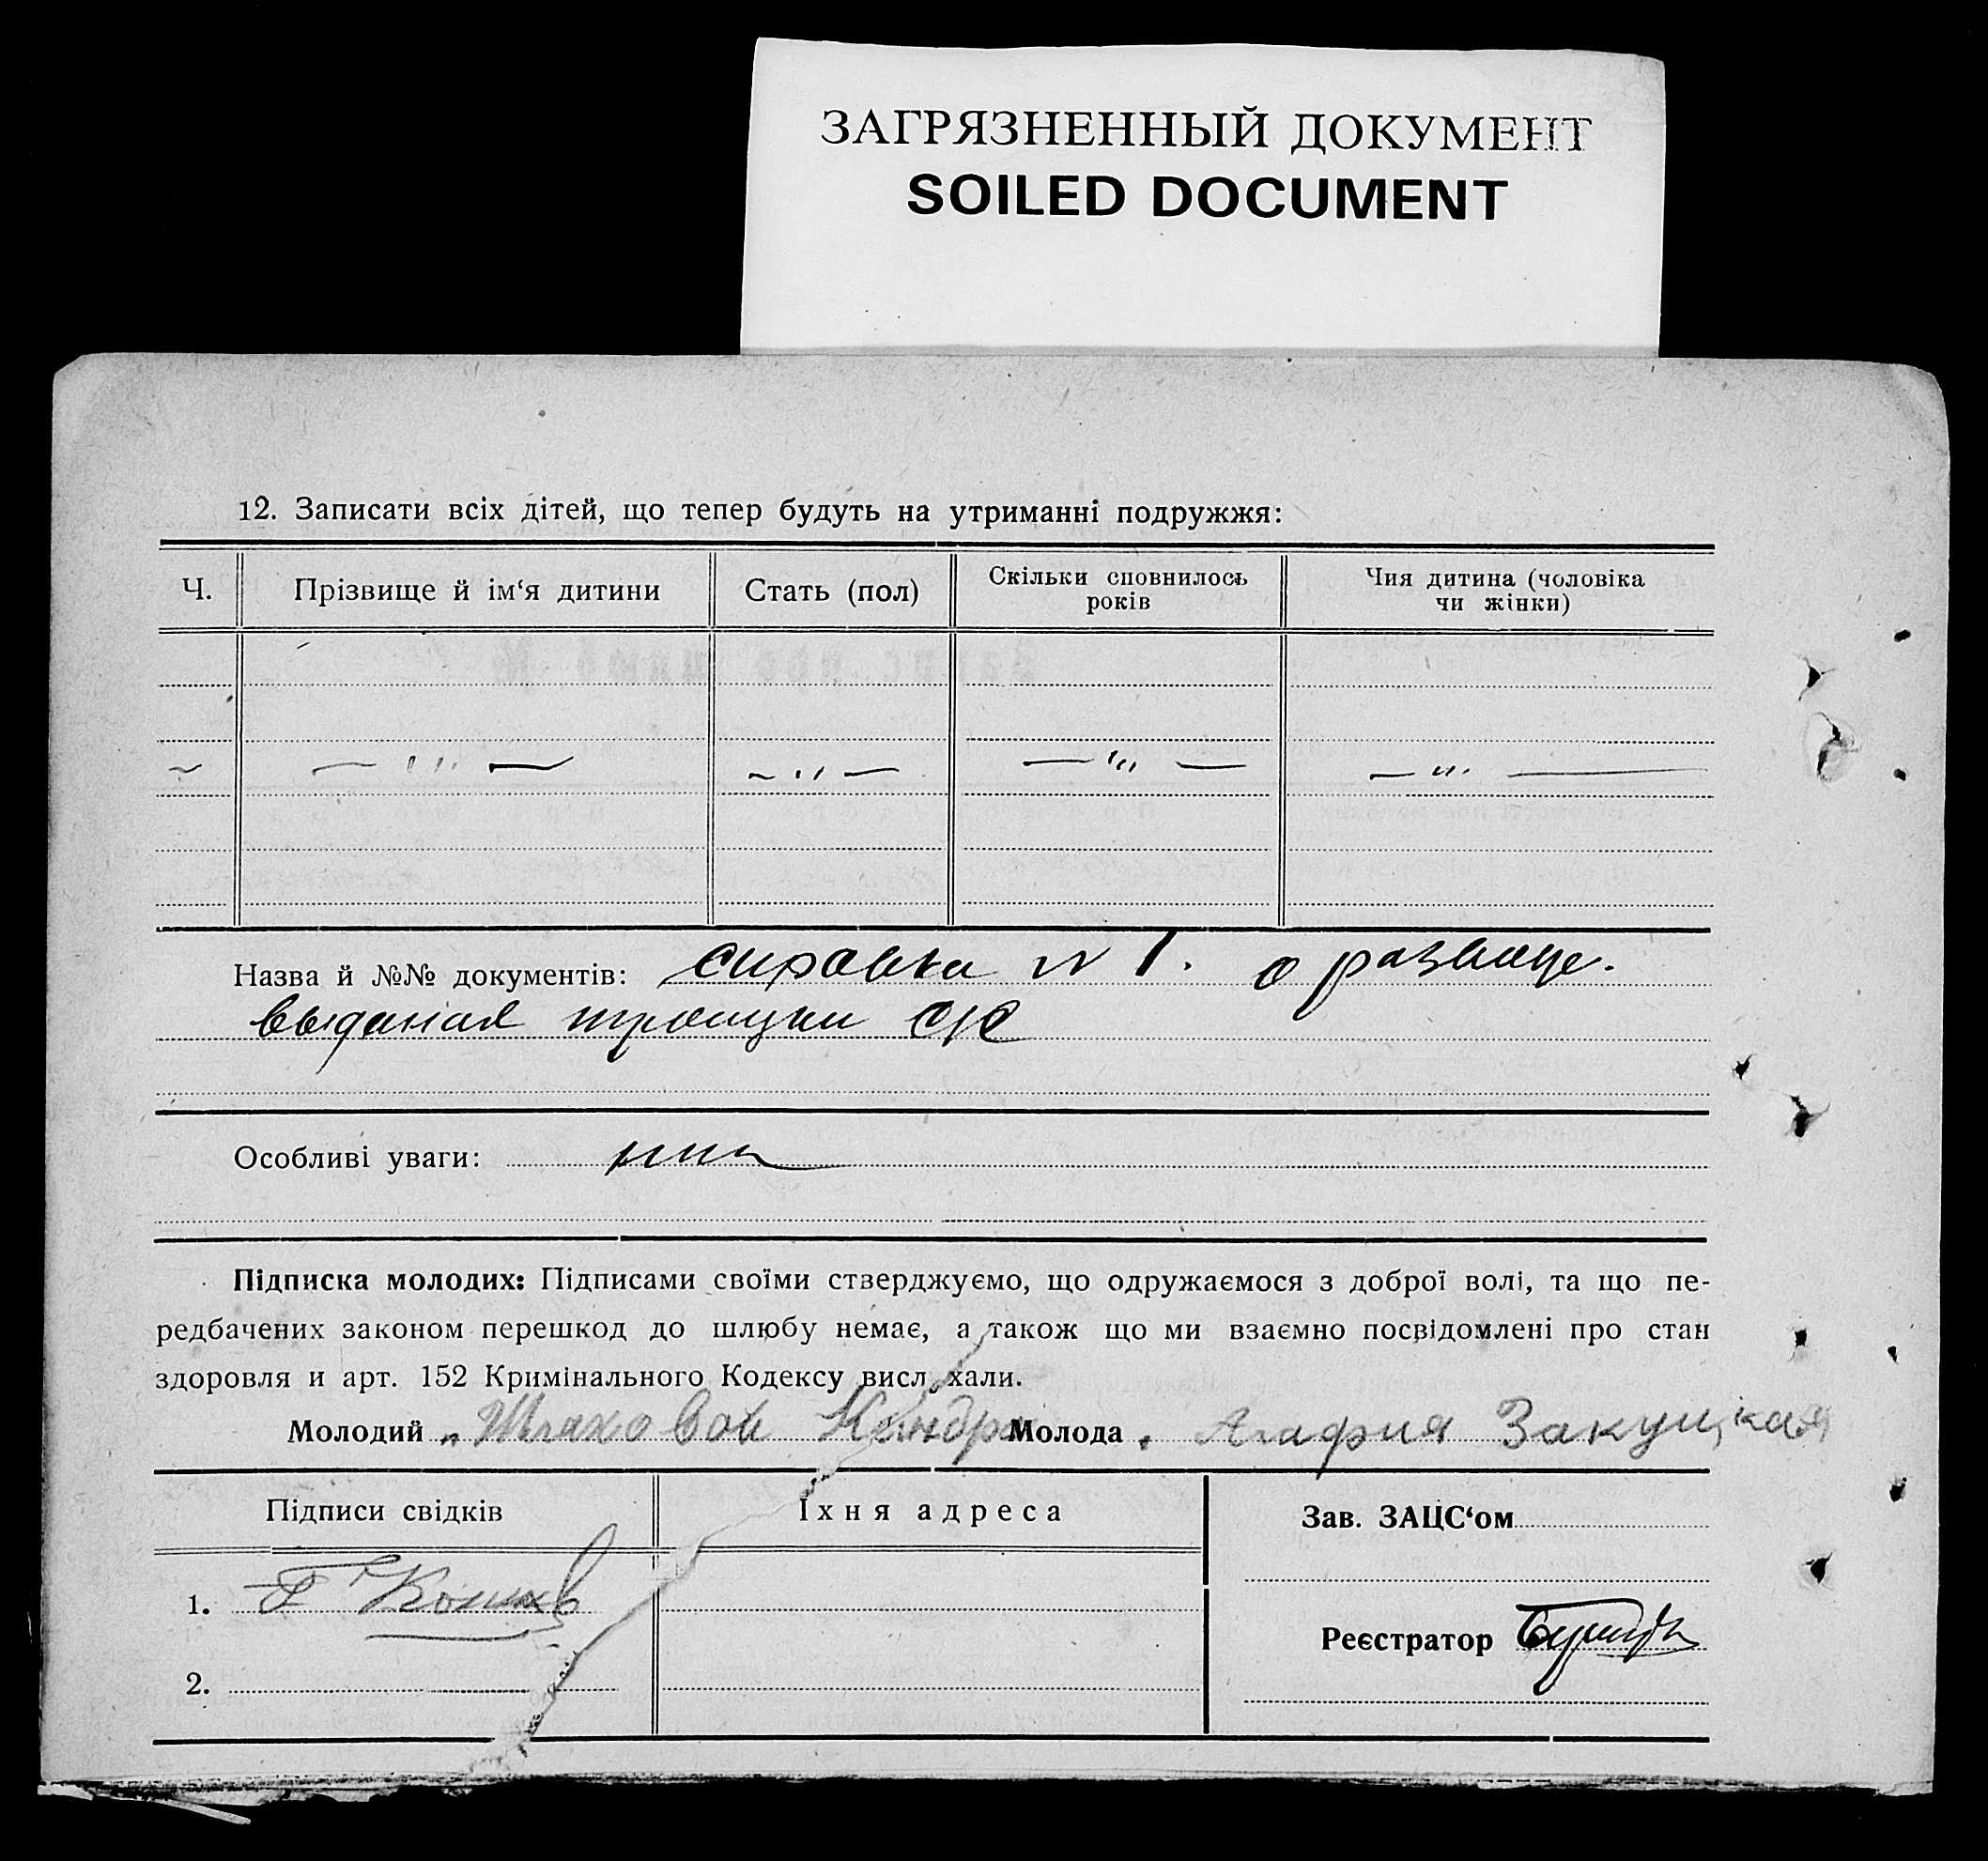 ЗАГРЯЗНЕННЫЙ ДОКУМЕНТ
SOILED DOCUMENT
12. Записати всіх дітей, що тепер будуть на утриманні подружжя:
Ч. Прізвище й ім‘я дитини Стать (пол) Скільки сповнилось років Чия дитина (чоловіка чи жінки)
— ''' — — '' — — ''' — — ''' —
Назва й №№ документів: справка N 1. о разводе.
выданая троицки с/с
Особливі уваги:
Підписка молодих: Підписами своїми стверджуємо, що одружаємося з доброї волі, та що пе-
редбачених законом перешкод до шлюбу немає, а також що ми взаємно посвідомлені про стан
здоровля и арт. 152 Кримінального Кодексу висл хали.
Молодий Шляховой Кондра Молода Агафия Закуцкая
Підписи свідків Їхня адреса Зав. ЗАЦС‘ом
1.
Реєстратор
2.